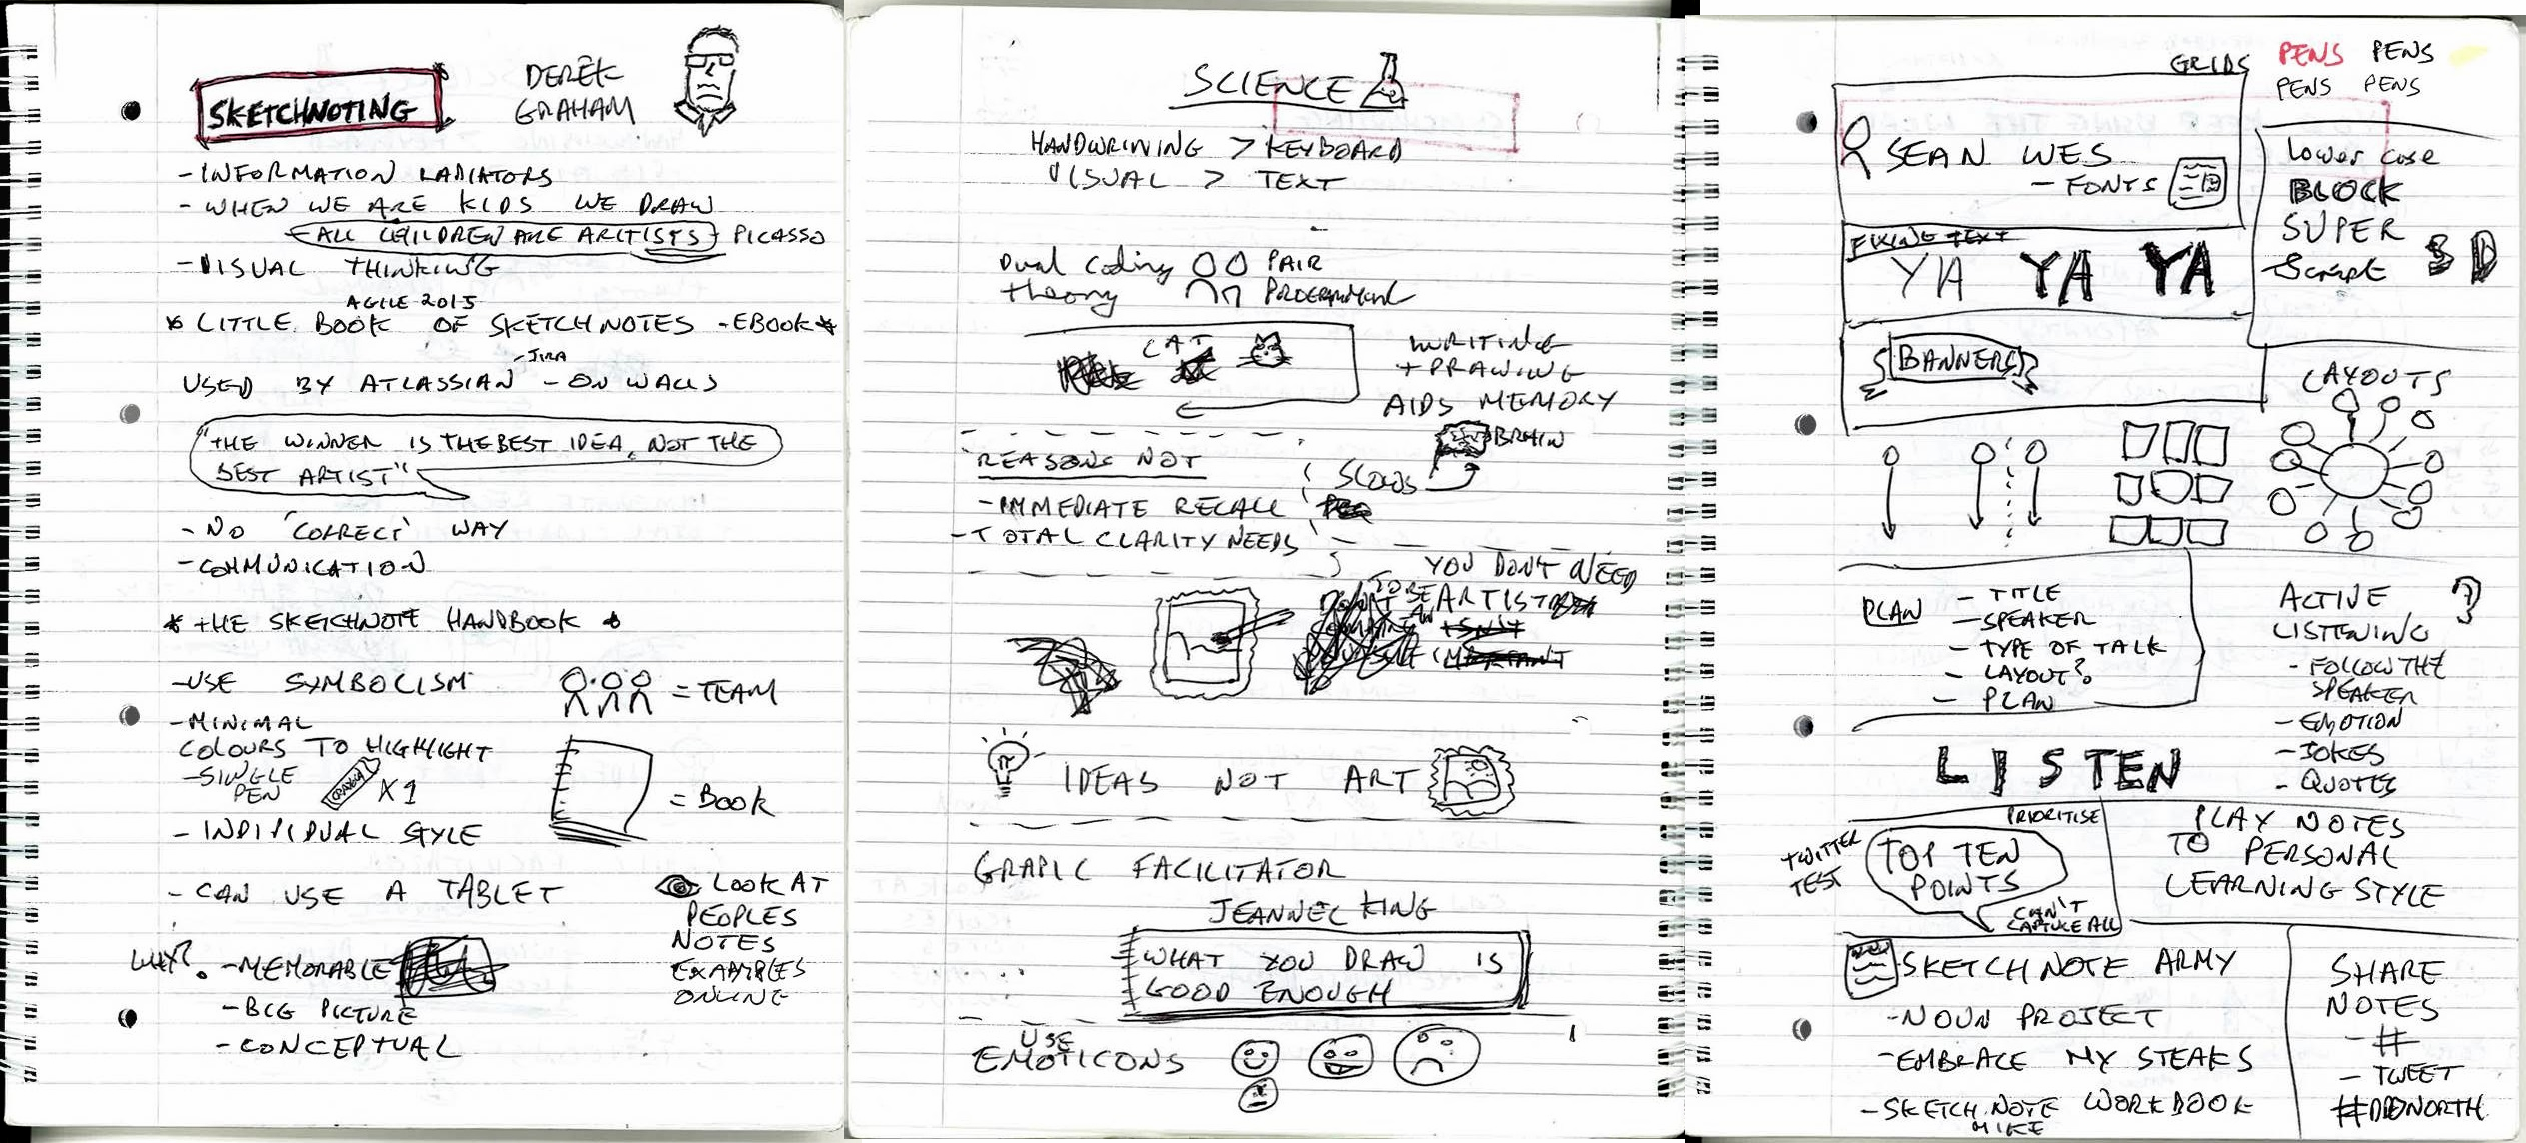 SKETCHNOTING
DEREK
GRAHAM
- INFORMATION RADIATORS
- WHEN WE ARE KIDS WE DRAW
ALL CHILDREN ARE ARITISTS PICASSO
- VISUAL THINKING
AGILE 2015
* LITTLE BOOK OF SKETCHNOTES - EBOOK *
- JIRA
USED BY ATLASSIAN - ON WALLS
"THE WINNER IS THE BEST IDEA, NOT THE
BEST ARTIST"
- NO 'CORRECT' WAY
- COMMUNICATION
* THE SKETCHNOTE HANDBOOK *
- USE SYMBOLISM
= TEAM
- MINIMAL
COLOURS TO HIGHLIGHT
- SINGLE
PEN
X1
= BOOK
- INDIVIDUAL STYLE
- CAN USE A TABLET
LOOK AT
PEOPLES
NOTES
EXAMPLES
ONLINE
WHY? - MEMORABLE
- BIG PICTURE
- CONCEPTUAL
SCIENCE
HANDWRINING > KEYBOARD
VISUAL > TEXT
Dual Coding
theory
PAIR
PROGRAMMING
CAT
WRITING
+ DRAWING
AIDS MEMORY
BRAIN
SLOWS
REASONS NOT
- IMMEDIATE RECALL
- TOTAL CLARITY NEEDS
YOU DON'T NEED
TO BE AN ARTIST
IDEAS NOT ART
GRAPIC FACILITATOR
JEANNEL KING
WHAT YOU DRAW IS
GOOD ENOUGH
USE
EMOTICONS
GRIDS
PENS PENS
PENS PENS
SEAN WES
- FONTS
Lower case
BLOCK
SUPER
Script
3D
YA YA YA
BANNERS
LAYOUTS
PLAN
- TITLE
- SPEAKER
- TYPE OF TALK
- LAYOUT?
- PLAN
ACTIVE
LISTENING
- FOLLOW THE
SPEAKER
- EMOTION
- JOKES
- QUOTES
LISTEN
PRIORITISE
TWITTER
TEST
TOP TEN
POINTS
CAN'T
CAPTURE ALL
PLAY NOTES
TO PERSONAL
LEARNING STYLE
SKETCHNOTE ARMY
- NOUN PROJECT
- EMBRACE MY STEAKS
- SKETCHNOTE WORKBOOK
MIKE
SHARE
NOTES
- #
- TWEET
#DDDNORTH